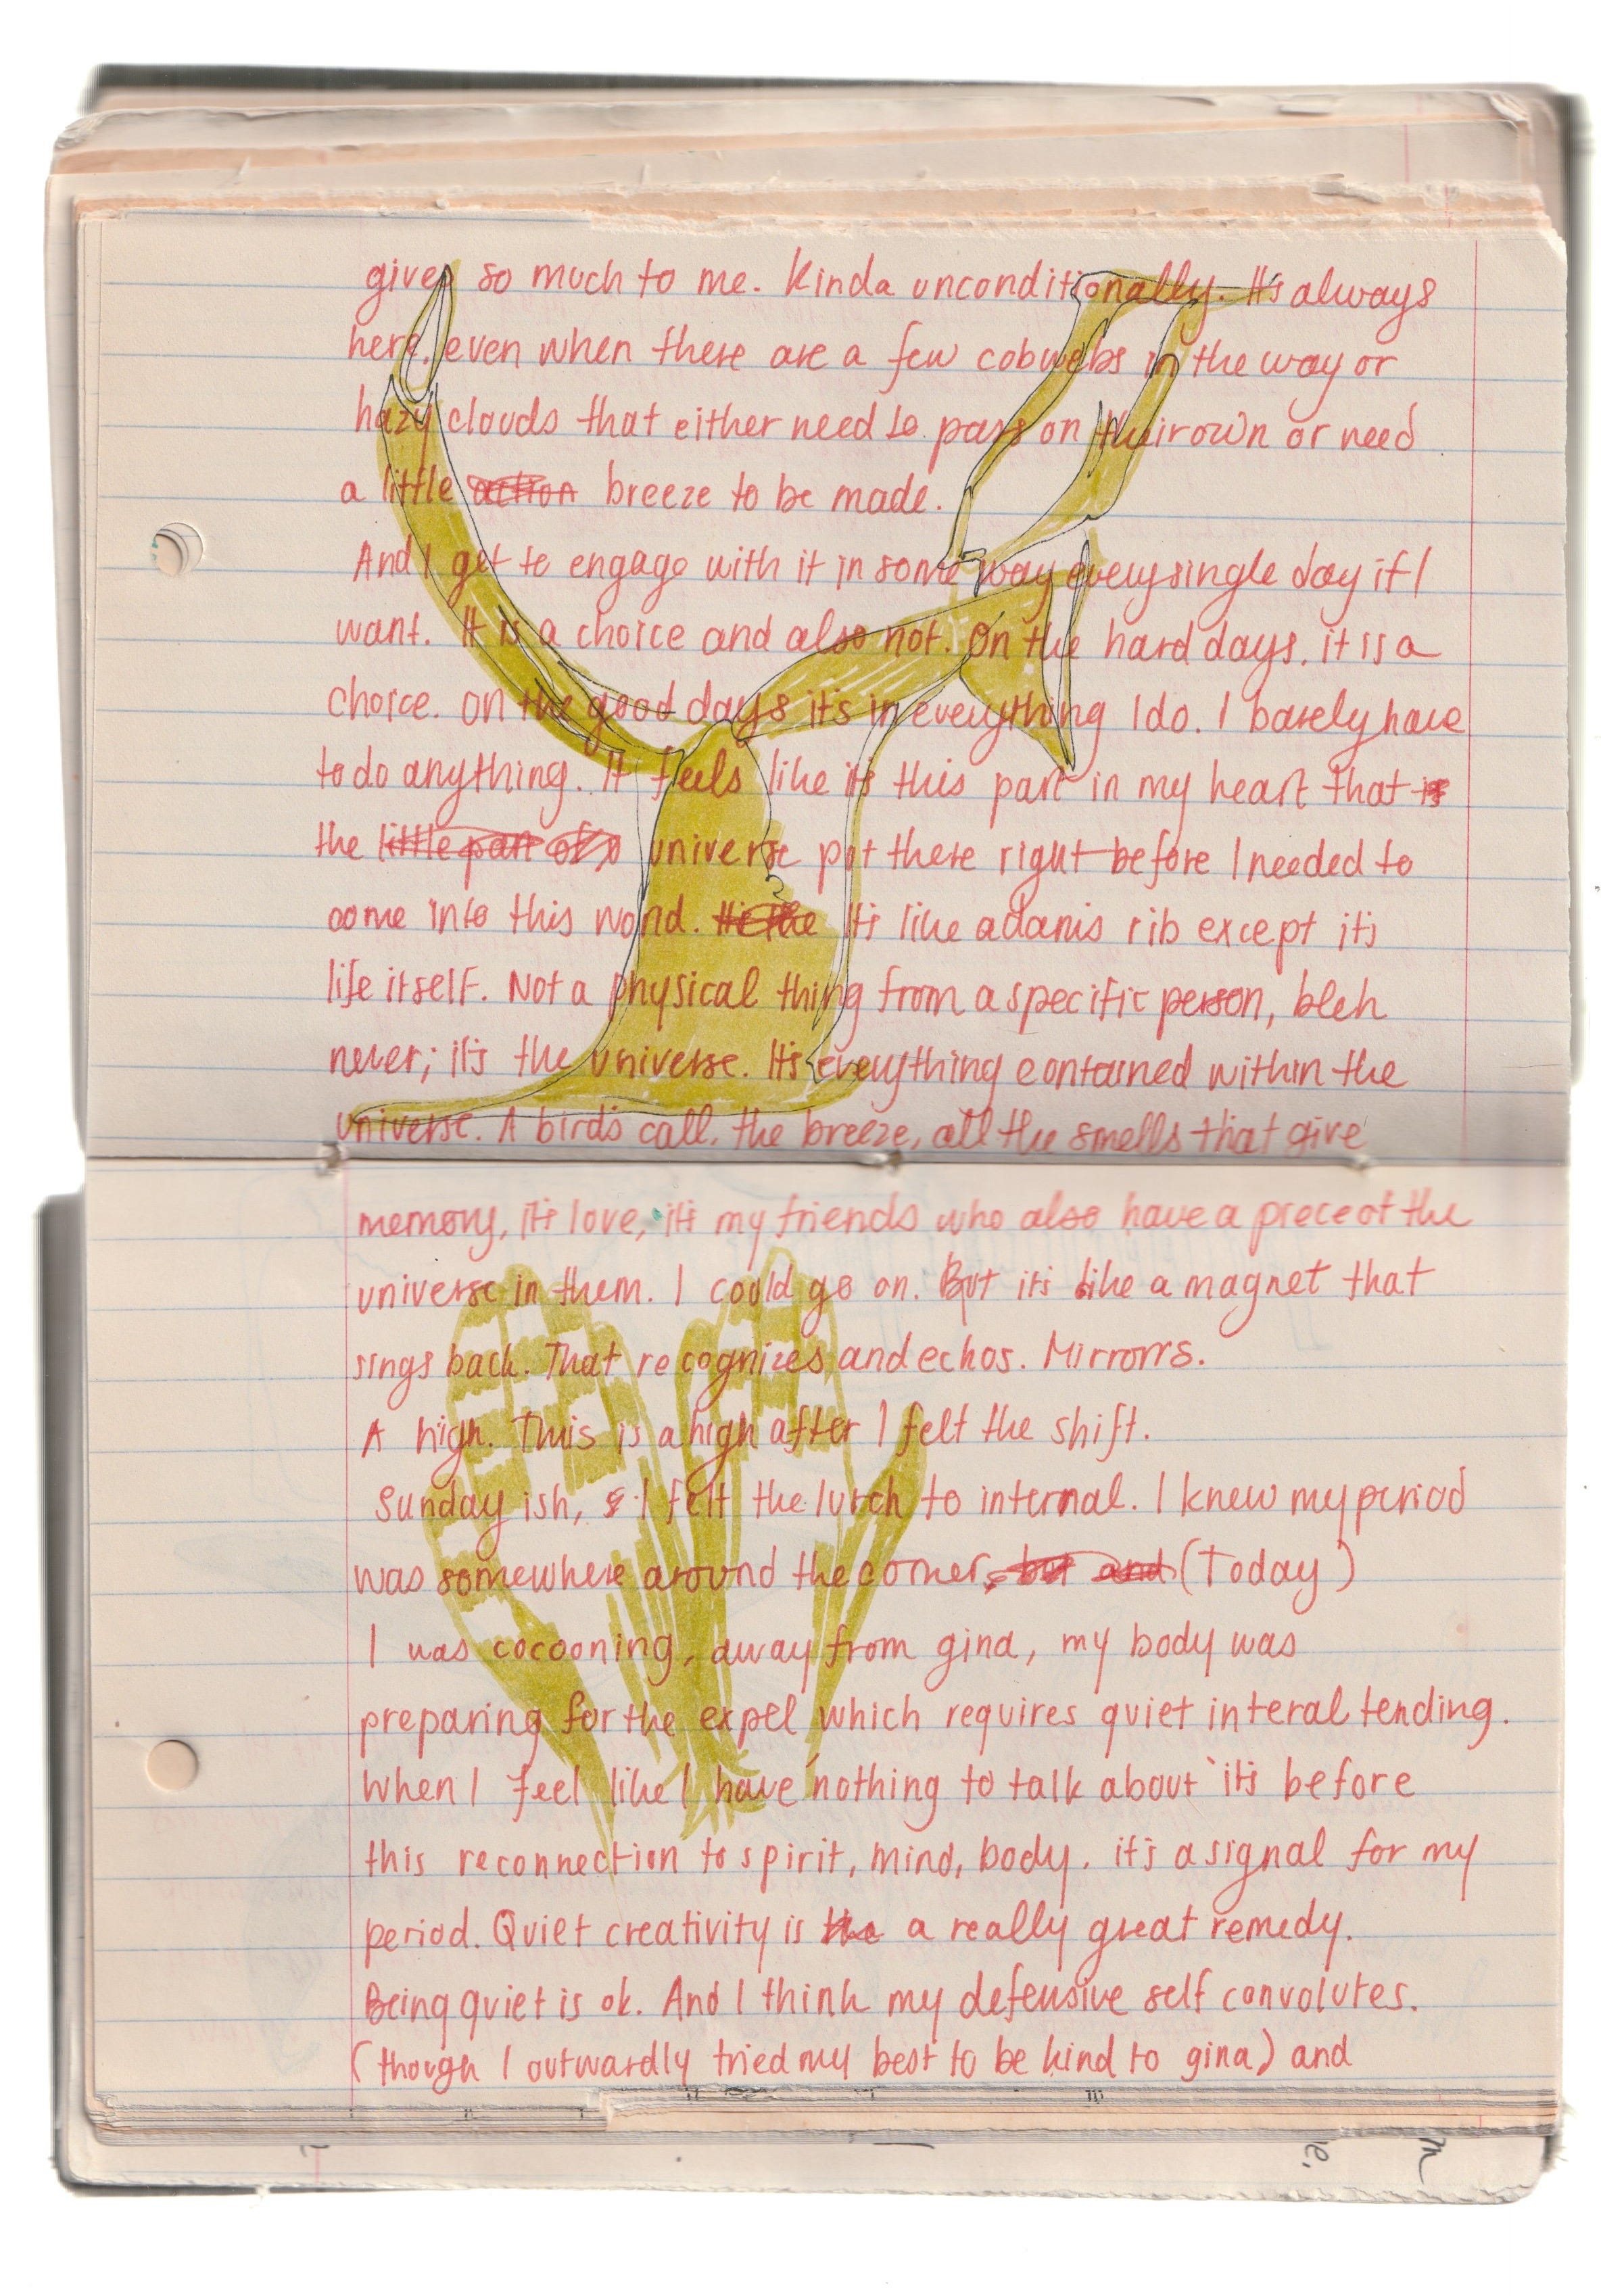 gives so much to me. Kinda unconditionally. It's always
here, even when there are a few cobwebs in the way or
hazy clouds that either need to pass on their own or need
a little action breeze to be made.
And I get to engage with it in some way every single day if I
want. It is a choice and also not. On the hard days, it is a
choice. On the good days it's in everything I do. I barely have
to do anything. It feels like it's this part in my heart that is
the little part of a universe put there right before I needed to
come into this world. It's the It's like adam's rib except it's
life itself. Not a physical thing from a specific person, bleh
never; it's the universe. It's everything contained within the
universe. A bird's call, the breeze, all the smells that give
memory, it's love, it's my friends who also have a piece of the
universe in them. I could go on. But it's like a magnet that
sings back. That recognizes and echos. Mirrorrs.
A high. This is a high after I felt the shift.
Sunday ish, I felt the lurch to internal. I knew my period
was somewhere around the corner, but and (Today)
I was cocooning, away from gina, my body was
preparing for the expel which requires quiet interal tending.
When I feel like I have nothing to talk about it's before
this reconnection to spirit, mind, body. it's a signal for my
period. Quiet creativity is the a really great remedy.
Being quiet is ok. And I think my defensive self convolutes.
(though I outwardly tried my best to be kind to gina) and